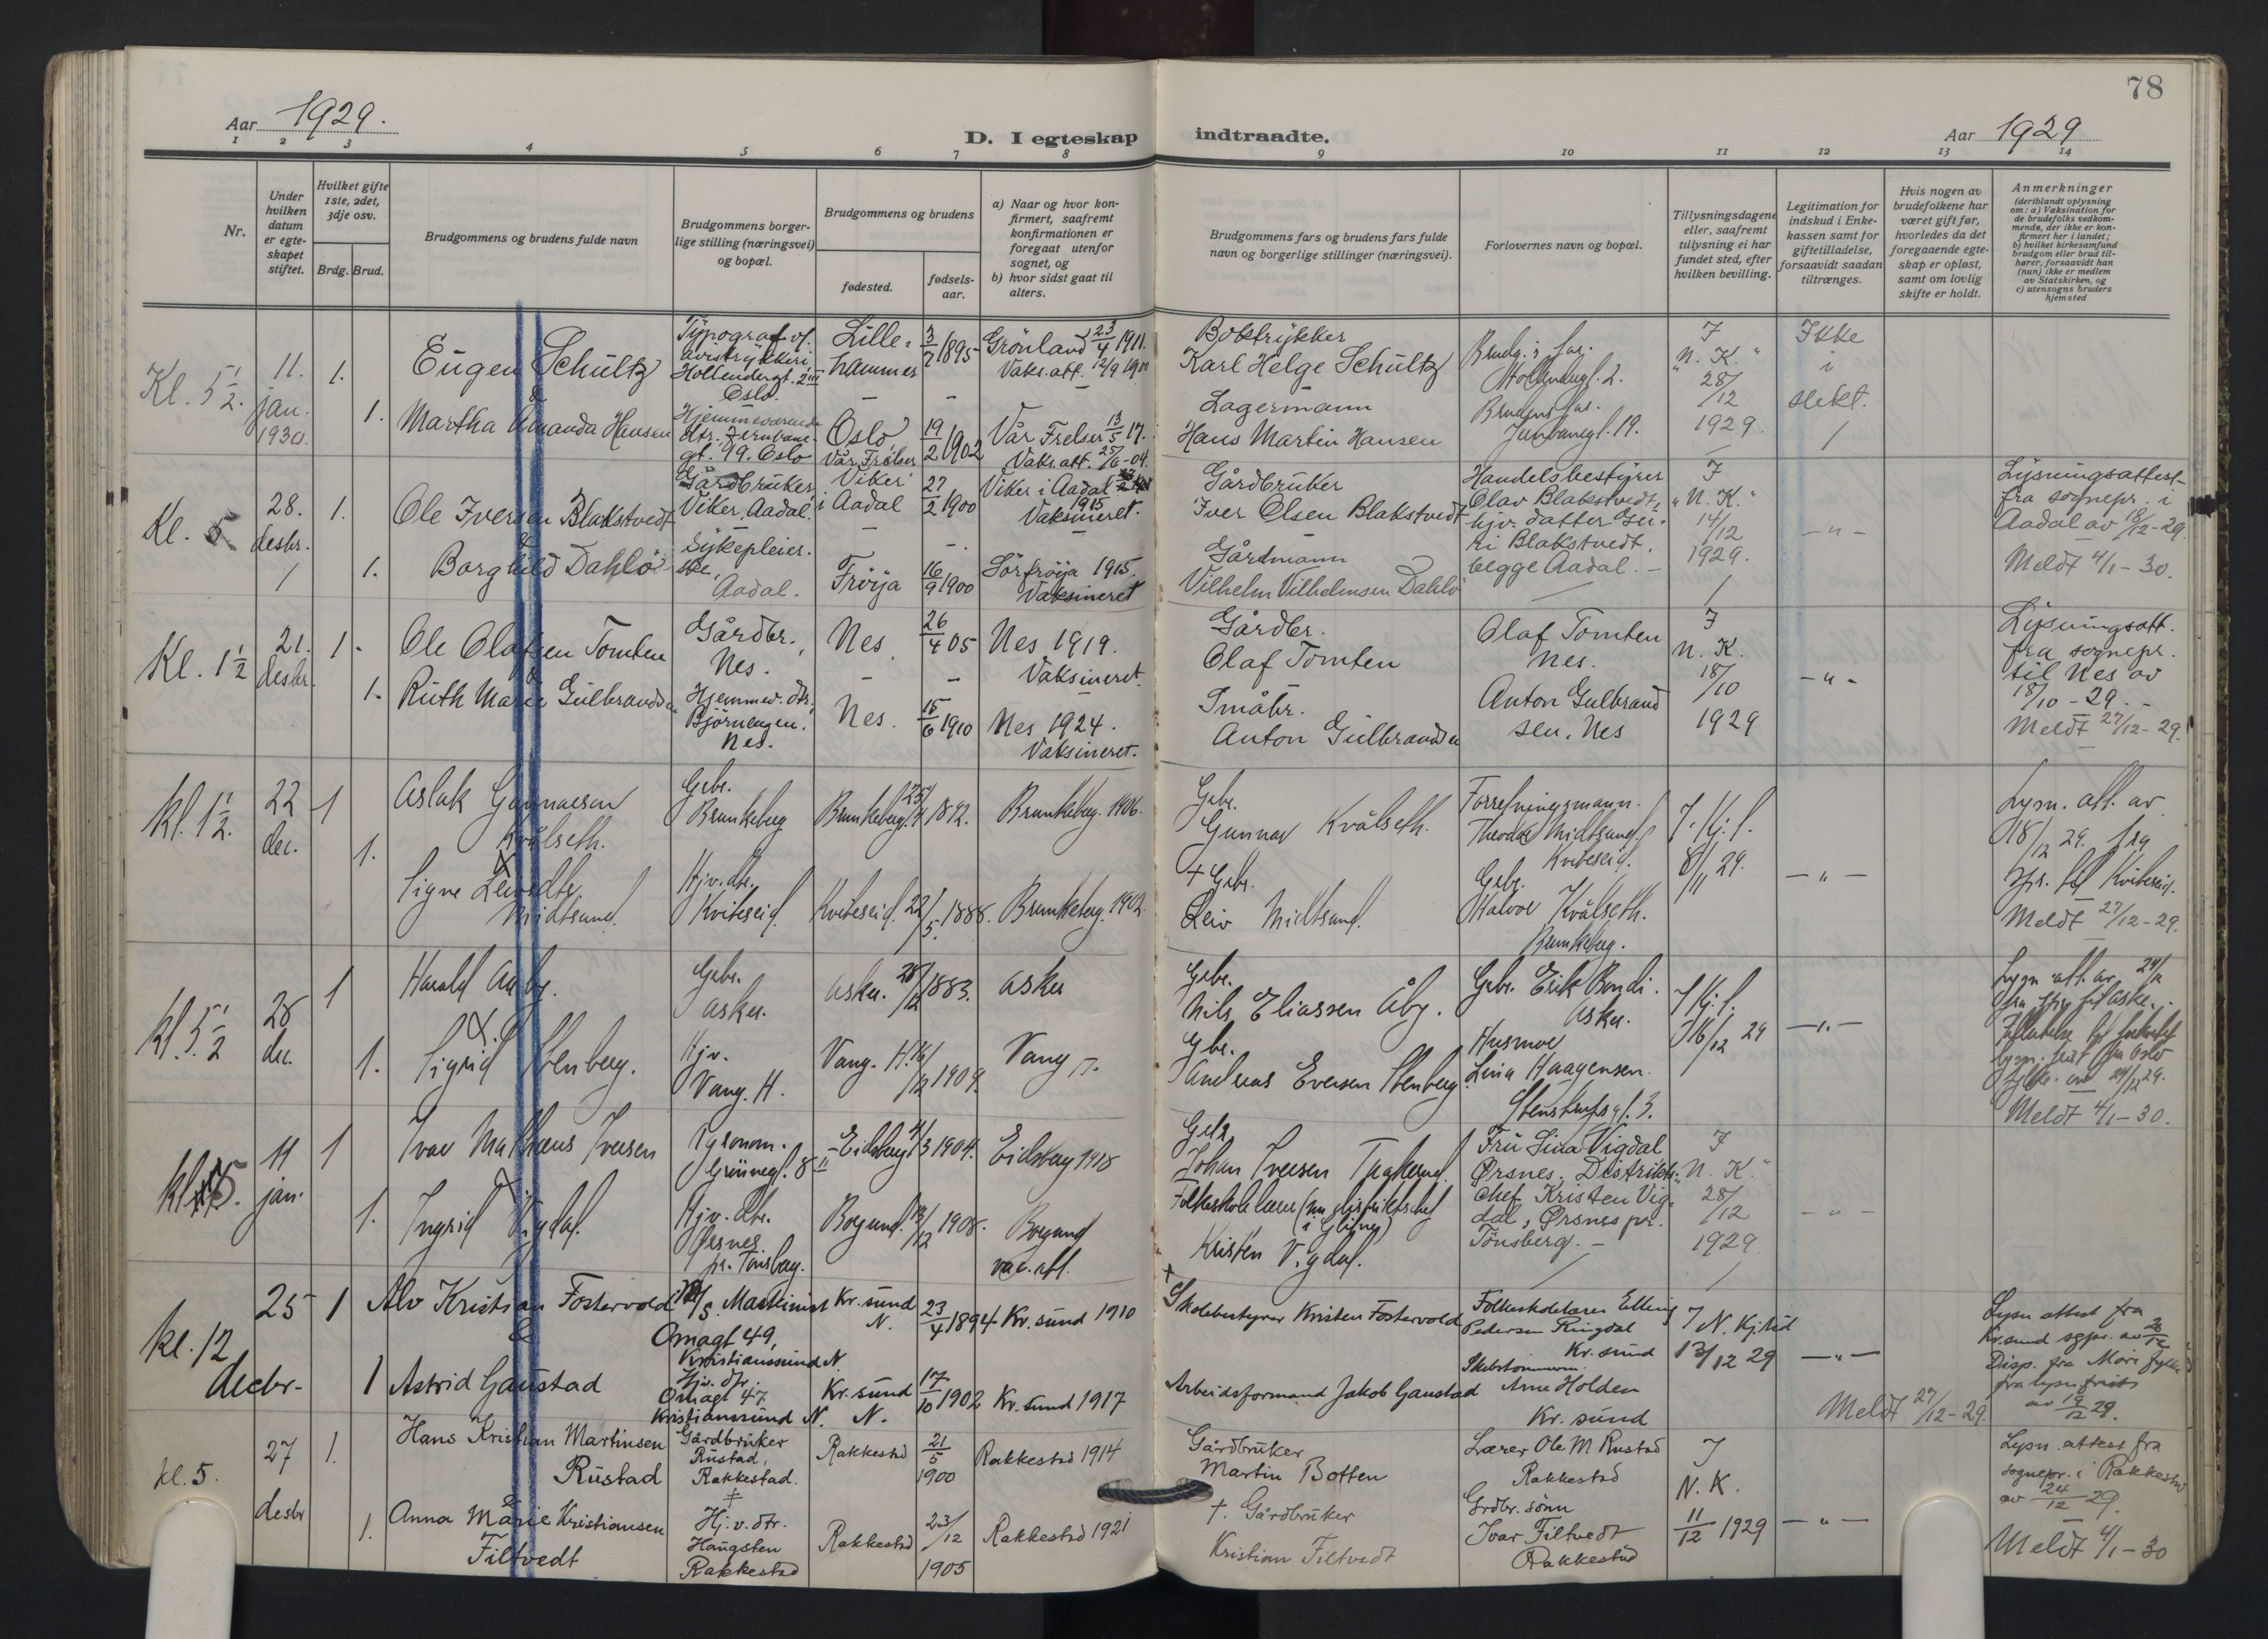 78
Aar 1929.
D. I egteskap indtraadte.
Aar 1929
1 2 3 4 5 6 7 8 9 10 11 12 13 14
Nr.
Under hvilken datum er egte-skapet stiftet.
Hvilket gifte 1ste, 2det, 3dje osv.
Brdg. Brud.
Brudgommens og brudens fulde navn
Brudgommens borger-lige stilling (næringsvei) og bopæl.
Brudgommens og brudens
fødested.
fødsels-aar.
a) Naar og hvor kon-firmert, saafremt konfirmationen er foregaat utenfor sognet, og
b) hvor sidst gaat til alters.
Brudgommens fars og brudens fars fulde navn og borgerlige stillinger (næringsvei).
Forlovernes navn og bopæl.
Tillysningsdagene eller, saafremt tillysning ei har fundet sted, efter hvilken bevilling.
Legitimation for indskud i Enke-kassen samt for giftetilladelse, forsaavidt saadan tiltrænges.
Hvis nogen av brudefolkene har været gift før, hvorledes da det foregaaende egte-skap er opløst, samt om lovlig skifte er holdt.
Anmerkninger
(deriblandt oplysning om: a) Vaksination for de brudefolks vedkom-mende, der ikke er kon-firmert her i landet; b) hvilket kirkesamfund brudgom eller brud til-hører, forsaavidt han (hun) ikke er medlem av Statskirken, og c) utensogns bruders hjemsted
Kl. 5 1/2. 11. jan. 1930.
1. Eugen Schultz
&
1. Martha Amanda Hansen
Typograf v/ avistrykkeri
Hollendergt. 2 III
Oslo.
Lille-hammer 3/7 1895
Grønland 23/4 1911.
Vaks.att.
Boktrykker
Karl Helge Schultz
Brudg.s far.
Hollendergt. 2.
I "N. K." 28/12 1929
Ikke i slekt.
Hjemmeværende dtr. Jernbane-gt. 19. Oslo
Oslo Vår Frelser 19/2 1902
Vår Frelser 13/5 17.
Vaks.att. 25/6-04.
Lagermann
Hans Martin Hansen
Brudens far.
Jernbanegt. 19.
Kl. 5 28. desbr.
1. Ole Iversen Blakstvedt
&
1. Borghild Dahlö
Gårdbruker
Viker, Aadal.
Viker i Aadal 27/2 1900
Viker i Aadal 1915
Vaksineret.
Gårdbruker
Iver Olsen Blakstvedt
Handelsbestyrer
Olav Blakstvedt,
hjv. datter Gu-ri Blakstvedt,
begge Aadal.
I "N. K." 14/12 1929.
- " -
Lysningsattest fra sognepr. i Aadal av 18/12-29.
Meldt 4/1-30.
Sykepleier-ske, Aadal.
Fröya 16/9 1900
Sörfröya 1915.
Vaksineret
Gårdmann
Vilhelm Vilhelmsen Dahlö
Kl. 1 1/2 21. desbr.
1. Ole Olafsen Tomten
&
1. Ruth Marie Gulbrandsen
Gårdbr., Nes.
Nes 26/4 05
Nes 1919.
Vaksineret.
Gårdbr.
Olaf Tomten
Olaf Tomten
Nes.
I N. K. 18/10 1929
- " -
Lysningsatt. fra sognepr. til Nes av 18/10-29.
Meldt 27/12-29.
Hjemmev. dtr, Björnengen, Nes.
Nes. 15/6 1910
Nes 1924.
Vaksineret.
Småbr.
Anton Gulbrandsen
Anton Gulbrand sen, Nes
Kl. 1 1/2. 22 dec.
1 Aslak Gunnarson Kvålseth.
&
1. Signe Leivsdtr. Midtsund.
Gbr. Brunkeberg
Brunkeberg. 25/4 1892.
Brunkeberg. 1906.
Gbr.
Gunnar Kvålseth.
Forretningsmann.
Theodor Midtsund
Kviteseid.
I. Kj. f. 8/11 29.
- " -
Lysn. att. av 18/12 29. fra spr. til Kviteseid.
Meldt 27/12-29.
Hjv. dtr. Kviteseid.
Kviteseid. 22/5. 1888.
Brunkeberg. 1902.
+ Gbr.
Leiv Midtsund.
Gbr.
Halvor Kvålseth.
Brunkeberg.
Kl. 5 1/2 28 dec.
1 Harald Aaby.
&
1. Sigrid Stenberg.
Gbr. Asker.
Asker. 28/12 1883.
Asker
Gbr.
Nils Eliassen Åby.
Gbr. Erik Bondi.
Asker.
I Kj. f. 16/12 29
- " -
Meldt 4/1-30.
Hjv. Vang. H.
Vang. H. 16/12 1909.
Vang
Gbr.
Andreas Eversen Stenberg.
Husmor
Lina Haagensen.
Stenstrupsgt. 3.
Kl. 5. 11 jan.
1 Ivar Matheus Iversen
&
1. Ingrid Vigdal.
Agronom.
Grünegt. 8 II
Eidsberg 1904.
Eidsberg 1918
Johan Iversen
Fru Lina Vigdal
Ørsnes. Distrikts-chef Kristen Vig-dal, Ørsnes pr. Tönsberg.
I N. K." 28/12 1929
- " -
Hjv. dtr. Ørsnes pr. Tönsberg.
Borgund. 13/12 1908.
Borgund
vac. att.
Folkeskolelærer (nu distriktschef
Kristen Vigdal.
Kl. 12 25 decbr.
1 Alv Kristian Fostervold
&
1 Astrid Gaustad
Maskinist
Omagt 49,
Kristianssund N.
Kr. sund N. 23/4 1894
Kr. sund 1910
+ Skolebestyrer Kristen Fostervold
Folkeskolelærer Elling Pedersen Ringdal
Kr. sund
I N. Kj.tid 13/12 29
- " -
Lysn attest fra Kr.sund
Disp. fra Möre fylke fra lysn frist av 19/12 29.
Meldt 27/12-29.
Hjv. dtr.
Omagt 47.
Kristianssund N.
Kr. sund N. 17/10 1902
Kr. sund 1917
Arbeidsformand Jakob Gaustad
Arne Holden
Kr. sund
kl. 5. 27 desbr
1. Hans Kristian Martinsen Rustad
&
1. Anna Marie Kristiansen Filtvedt
Gårdbruker
Rustad, Rakkestad.
Rakkestad 21/5 1900
Rakkestad 1914
Gårdbruker
Martin Botten
Lærer Ole M Rustad
Rakkestad
I N. K. 11/12 1929
- " -
Lysn. attest fra sognepr. i Rakkestad av 24/12 29.
Meldt 4/1-30
Hj. v. dtr.
Haugsten
Rakkestad
Rakkestad 23/12 1905
Rakkestad 1921
+. Gårdbruker
Kristian Filtvedt
Grdbr. sönn
Ivar Filtvedt
Rakkestad